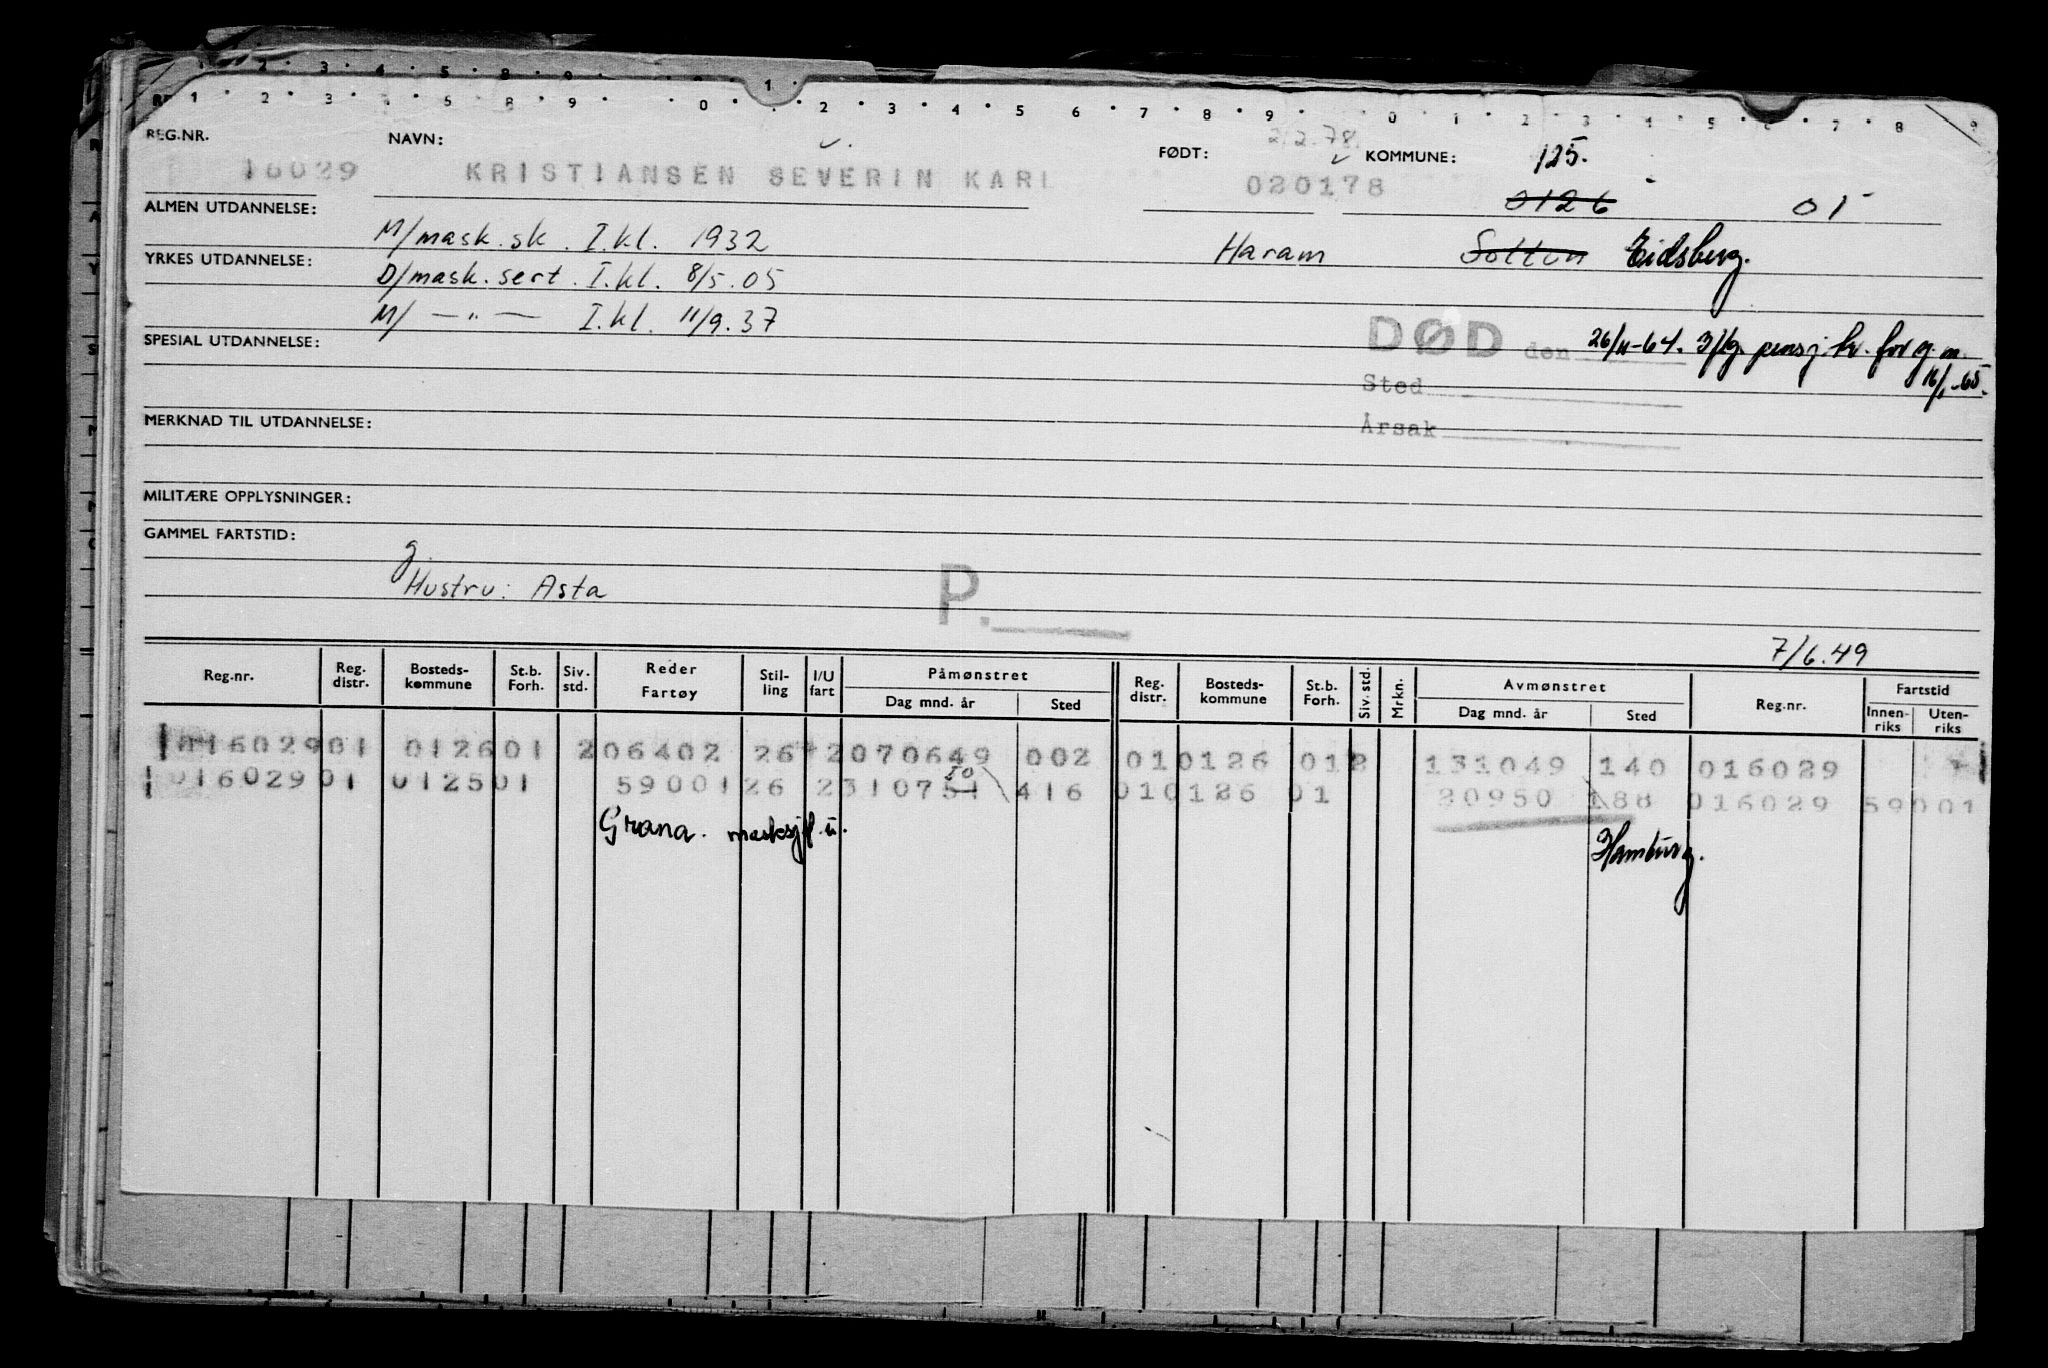 1 2 3 4 5 8 9 0 1 2 3 4 5 6 7 8 9 0 1 2 3 4 5 6 7 8 9
REG.NR. NAVN: FØDT: 2/2.78. KOMMUNE: 125.
16029 KRISTIANSEN SEVERIN KARL 020178 0126 01
ALMEN UTDANNELSE: M/mask.sk. I.kl. 1932 Haram Eidsberg.
YRKES UTDANNELSE: D/mask.sert. I.kl. 8/5.05
M/ —„— I.kl. 11/9.37
SPESIAL UTDANNELSE: DØD den 26/11-64. 3/kg. pensj.kr. for g.m. 16/1-65.
Sted
MERKNAD TIL UTDANNELSE: Årsak
MILITÆRE OPPLYSNINGER:
GAMMEL FARTSTID:
g.
Hustru: Asta P.
7/6.49
Reg.nr. Reg. distr. Bosteds-kommune St.b. Forh. Siv. std. Reder Fartøy Stil-ling I/U fart Påmønstret Dag mnd. år Sted Reg. distr. Bosteds-kommune St.b. Forh. Siv. std. Mrkn. Avmønstret Dag mnd. år Sted Reg.nr. Fartstid Innen-riks Uten-riks
01602901 012601 206402 26 2070649 002 010126 012 131049 140 016029
50
01602901 012501 5900126 2310751 416 010126 01 20950 188 016029 59001
Grana. masksjf. u. Hamburg.